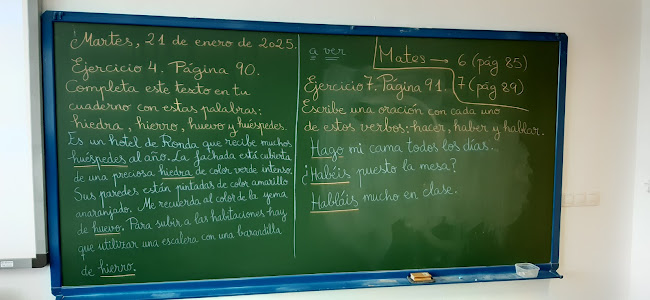 Martes, 21 de enero de 2025.
Ejercicio 4. Página 90.
Completa este texto en tu
cuaderno con estas palabras:
hiedra, hierro, huevo y huéspedes.
Es un hotel de Ronda que recibe muchos
huéspedes al año. La fachada está cubierta
de una preciosa hiedra de color verde intenso.
Sus paredes están pintadas de color amarillo
anaranjado. Me recuerda al color de la yema
de huevo. Para subir a las habitaciones hay
que utilizar una escalera con una barandilla
de hierro.
a ver
Mates → 6 (pág 85)
7 (pág 89)
Ejercicio 7. Página 91.
Escribe una oración con cada uno
de estos verbos: hacer, haber y hablar.
Hago mi cama todos los días.
¿Habéis puesto la mesa?
Habláis mucho en clase.